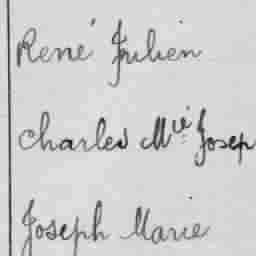 René Julien
Charles Mie Josep
Joseph Marie